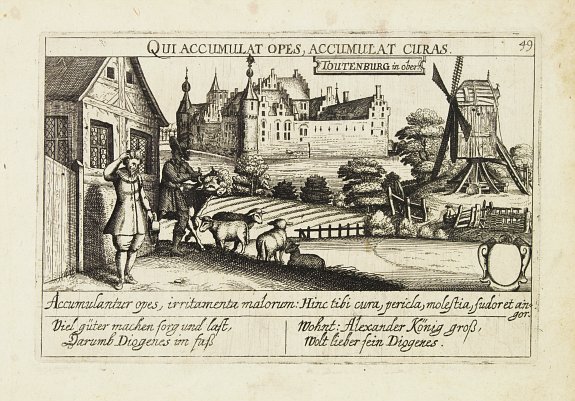 QUI ACCUMULAT OPES, ACCUMULAT CURAS.
49
TOUTENBURG in ober
Accumulantur opes, irritamenta malorum: Hinc tibi cura, pericla, molestia, sudor et an-
gor.
Viel güter machen sorg und last,
Darumb Diogenes im faß
Wohnt: Alexander König groß,
Wolt lieber sein Diogenes.